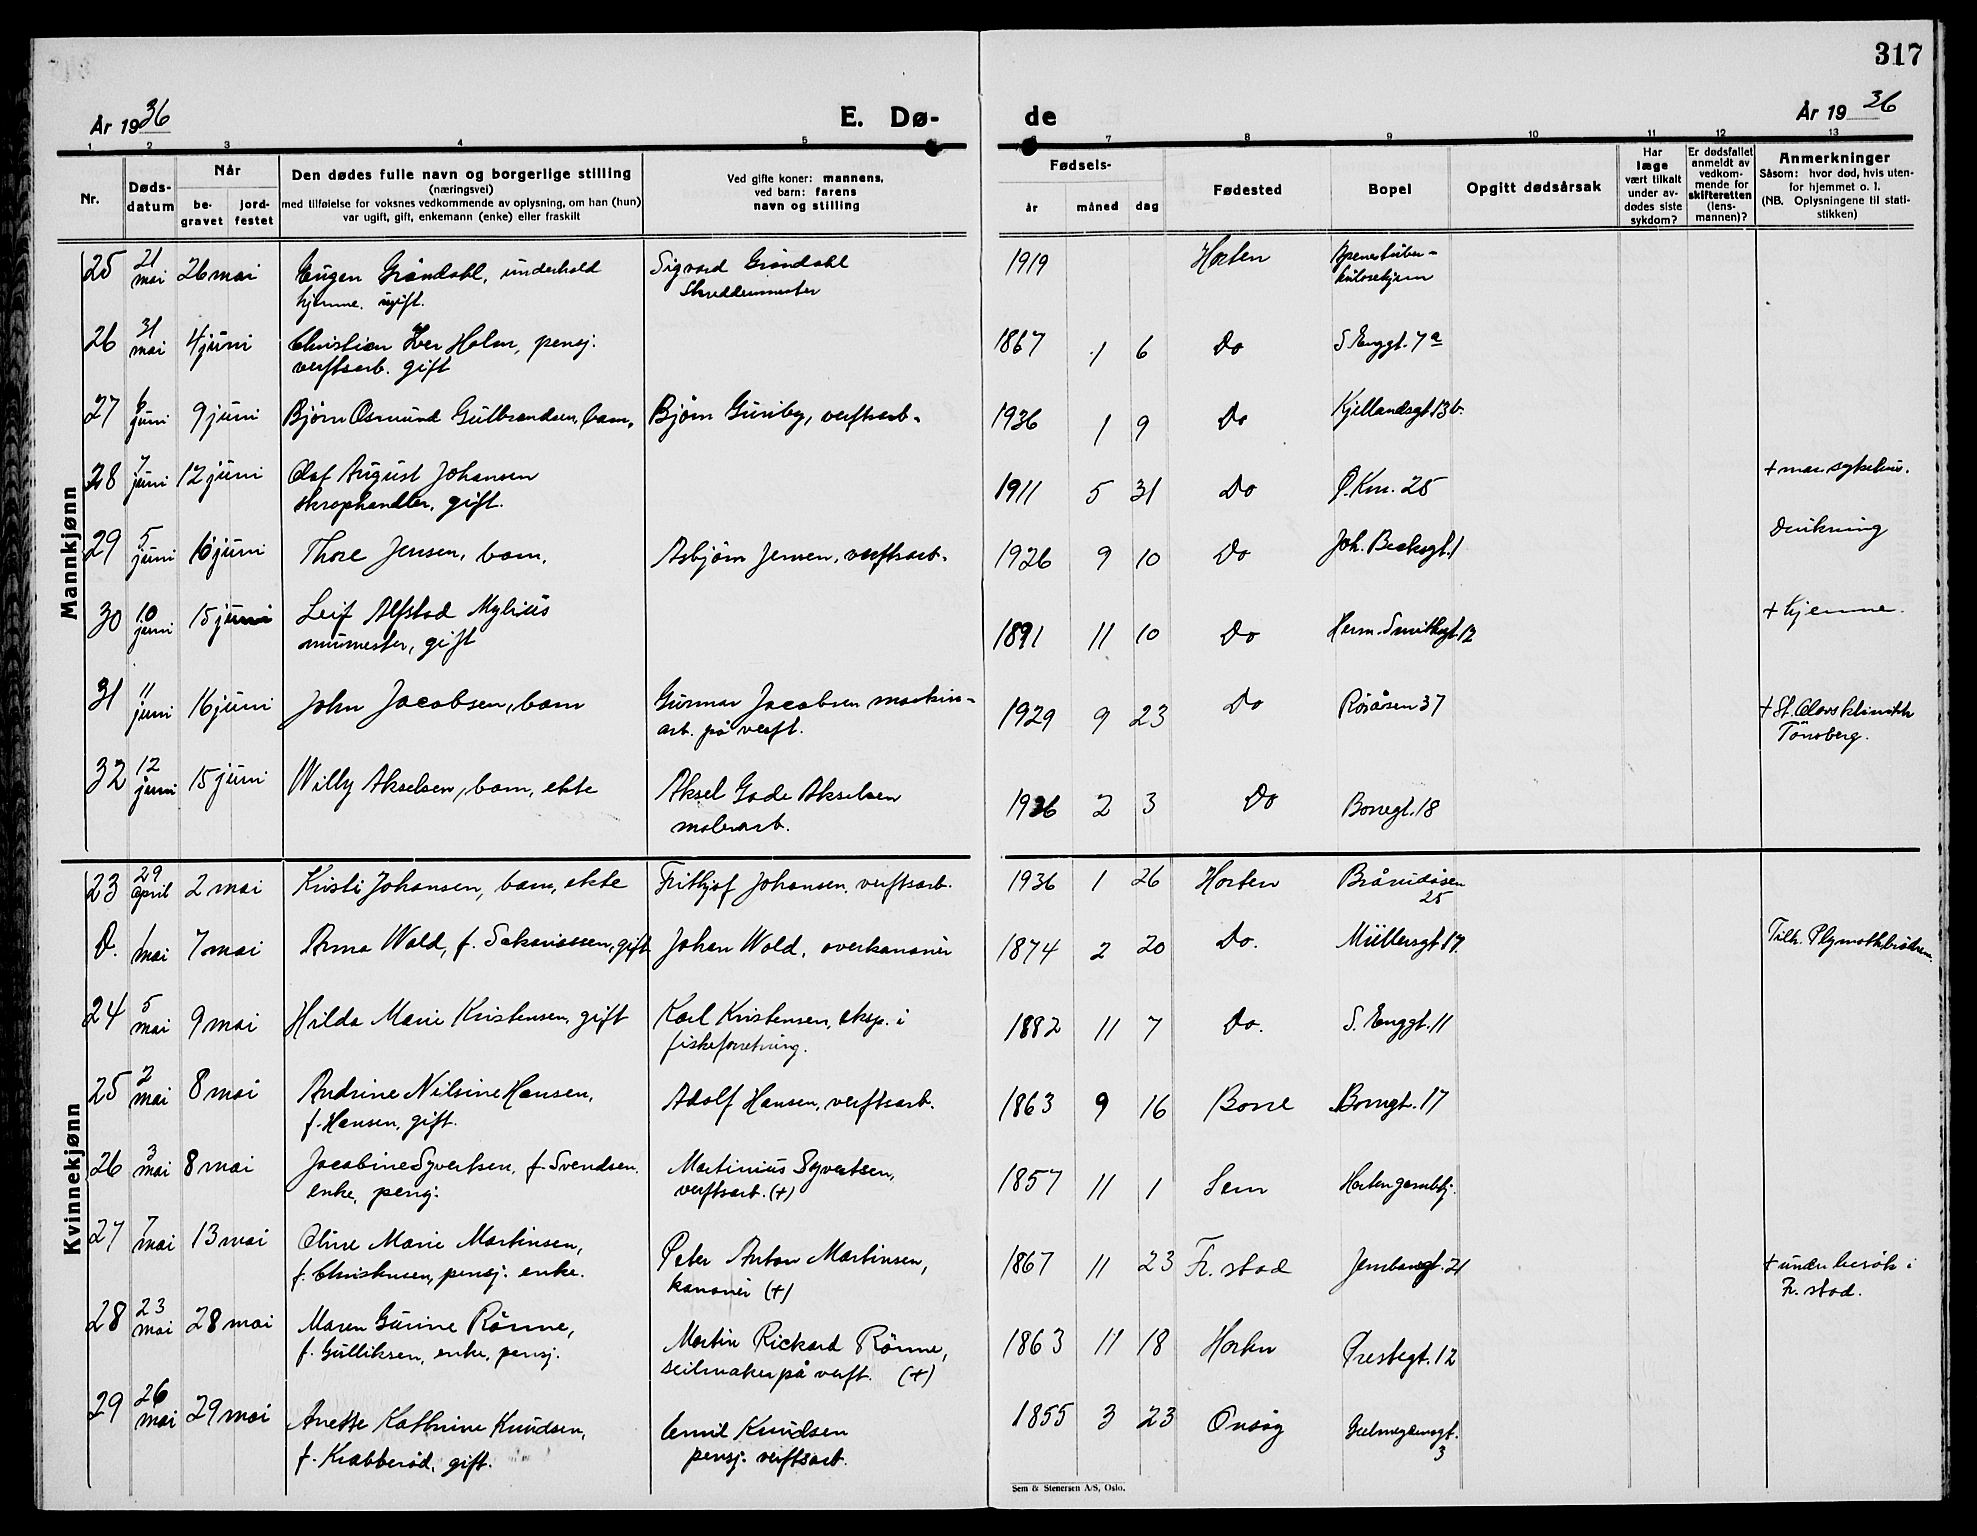 317
År 1936
E. Dø-
de
År 1936
1 2 3 4 5 6 7 8 9 10 11 12 13
Nr.
Døds-
datum
Når
be-
gravet
jord-
festet
Den dødes fulle navn og borgerlige stilling
(næringsvei)
med tilføielse for voksnes vedkommende av oplysning, om han (hun)
var ugift, gift, enkemann (enke) eller fraskilt
Ved gifte koner: mannens,
ved barn: farens
navn og stilling
Fødsels-
år måned dag
Fødested
Bopel
Opgitt dødsårsak
Har
læge
vært tilkalt
under av-
dødes siste
sykdom?
Er dødsfallet
anmeldt av
vedkom-
mende for
skifteretten
(lens-
mannen)?
Anmerkninger
Såsom: hvor død, hvis uten-
for hjemmet o. l.
(NB. Oplysningene til stati-
stikken)
Mannkjønn
25 21 mai 26 mai Eugen Gröndahl, underhold Sigvard Gröndahl 1919 Horten
hjemme. ugift. Skreddermester
26 31 mai 4 juni Christian Iver Holm, pensj. 1867 1 6 Do S. Enggt. 7a
verftsarb. gift
27 6 juni 9 juni Björn Osmund Gulbrandsen, barn, Björn Gunby, verftsarb. 1936 1 9 Do Kjellandsgt. 13b.
28 7 juni 12 juni Olaf August Johansen 1911 5 31 Do Ø. Km. 25 + mar. sykehus.
skraphandler, gift.
29 5 juni 10 juni Thore Jensen, barn, Asbjörn Jensen, verftsarb. 1926 9 10 Do Joh. Becksgt. 1 Drukning
30 10 juni 15 juni Leif Alfstad Mylius 1891 11 10 Do Herm. Smithsgt. 12 + hjemme.
murmester, gift
31 11 juni 16 juni John Jacobsen, barn Gunnar Jacobsen maskin- 1929 9 23 Do Röråsen 37 + St. Olavs klinikk
arb. på verft. Tönsberg.
32 12 juni 15 juni Willy Akselsen, barn, ekte Aksel Gode Akselsen 1936 2 3 Do Borregt. 18
malerarb.
Kvinnekjønn
23 29 april 2 mai Kristi Johansen, barn, ekte Frithjof Johansen, verftsarb. 1936 1 26 Horten Bråroråsen
25
D. 1 mai 7 mai Anna Wold, f. Sakariassen, gift Johan Wold, overkanonér 1874 2 20 Do. Müllersgt. 17. Tilh. Plymothbrödrene.
24 5 mai 9 mai Hilda Marie Kristensen, gift Karl Kristensen, eksp. i 1882 11 7 Do. S. Enggt. 11
fiskeforretning.
25 2 mai 8 mai Andrine Nilsine Hansen, Adolf Hansen, verftsarb. 1863 9 16 Borre Borregt. 17
f. Hansen, gift.
26 3 mai 8 mai Jacobine Syvertsen, f. Svendsen. Martinius Syvertsen, 1857 11 1 Sem Horten gamlehj.
enke, pensj. verftsarb. (+)
27 7 mai 13 mai Oline Marie Martinsen, Peter Anton Martinsen, 1867 11 23 Fr. stad Jernbanegt. 21 + under besök i
f. Christensen, pensj. enke. kanonér (+) Fr. stad.
28 23 mai 28 mai Maren Gurine Rönne, Martin Rickard Rönne, 1863 11 18 Horten Prestegt. 12
f. Gulliksen, enke, pensj. seilmaker på verft. (+)
29 26 mai 29 mai Anette Kathrine Knudsen, Emil Knudsen 1855 3 23 Onsöy
f. Krabberöd, gift. pensj. verftsarb. 3
Sem & Stenersen A/S, Oslo.